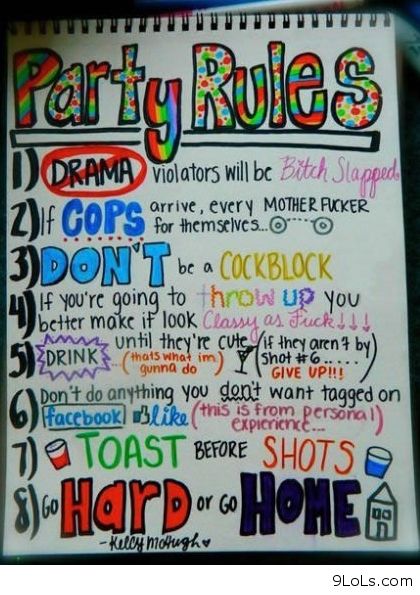 Party Rules
1) DRAMA violators will be Bitch Slapped
2) If COPS arrive, every MOTHER FUCKER
for themselves...
3) DON'T be a COCKBLOCK
4) If you're going to throw up you
better make it look Classy as Fuck!!!
5) DRINK until they're cute (if they aren't by
(thats what im gunna do) shot #6..... GIVE UP!!!)
6) Don't do anything you don't want tagged on
facebook like (this is from personal
expierence...)
7) TOAST BEFORE SHOTS
8) GO HARD or GO HOME
-Kelly McHugh
9LoLs.com